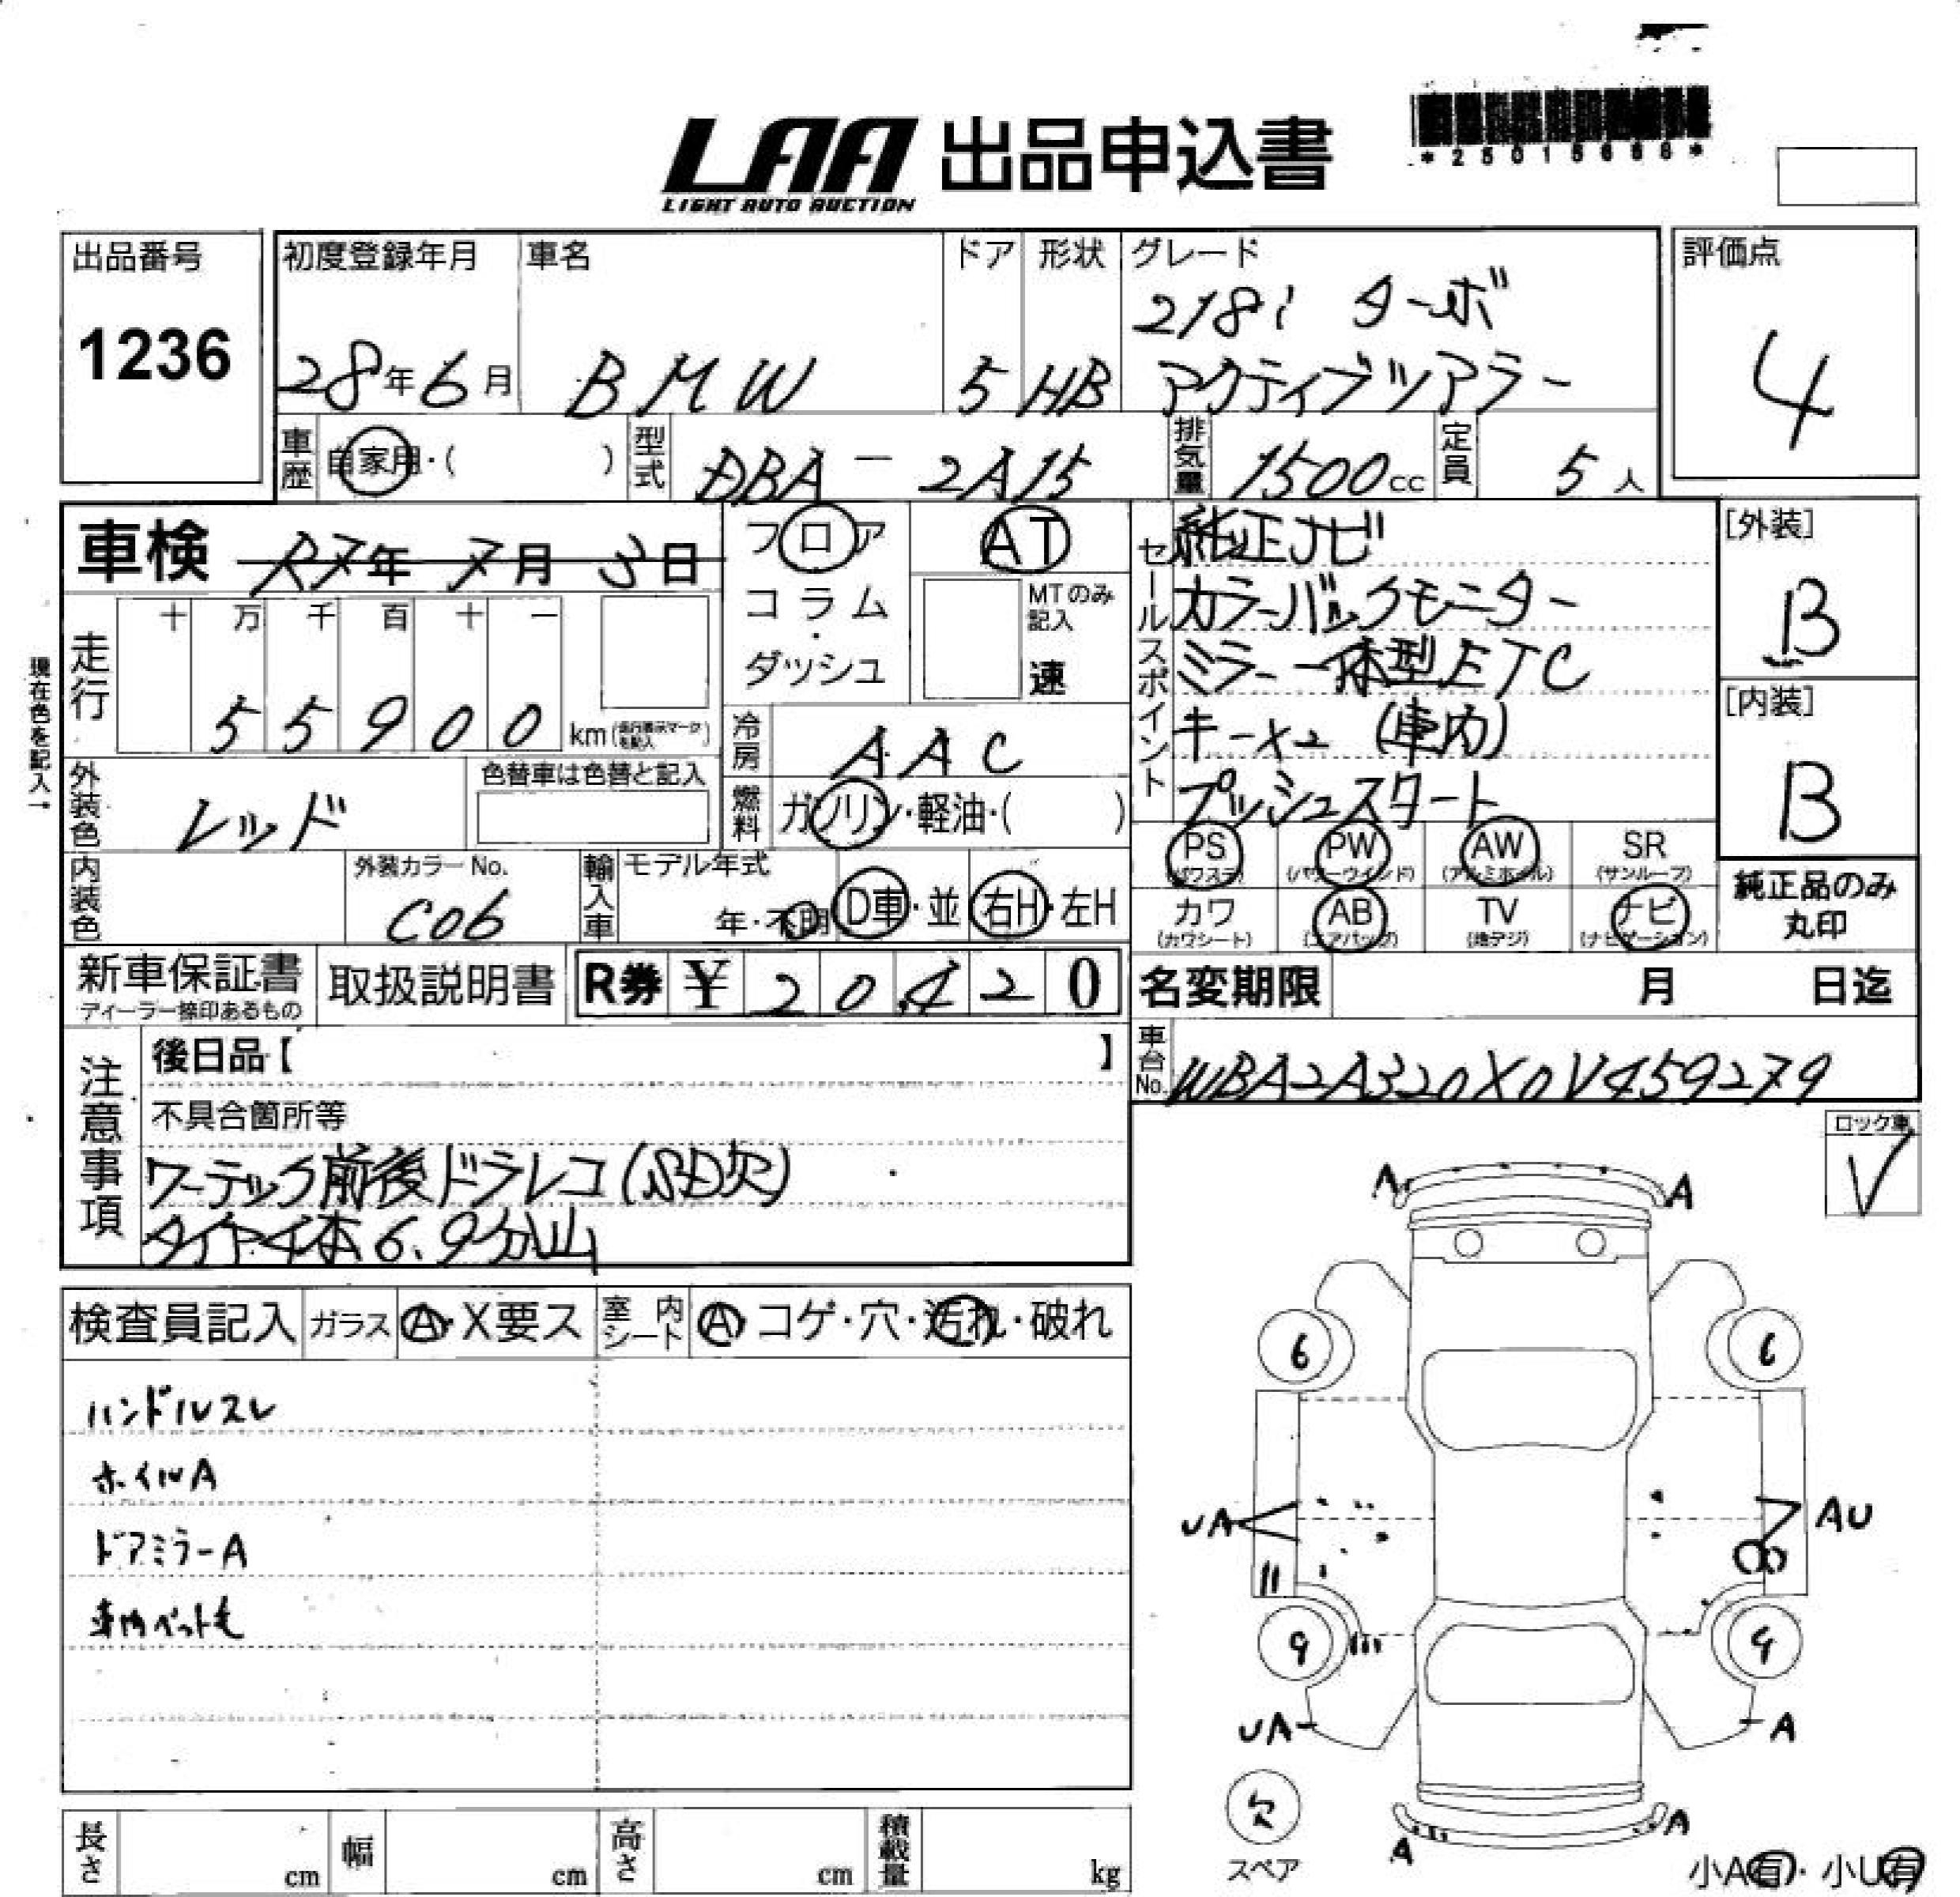 LAA 出品申込書
LIGHT AUTO AUCTION
出品番号
1236
初度登録年月
28年6月
車名
BMW
ドア
5
形状
HB
グレード
218i ターボ
アクティブツアラー
評価点
4
車歴
自家用・( )
型式
DBA-2A15
排気量
1500cc
定員
5人
車検 R7年7月3日
走行
十 万 千 百 十 一
5 5 9 0 0
km
フロア
コラム
・
ダッシュ
AT
MTのみ
記入
速
セールスポイント
純正ナビ
カラーバックモニター
ミラー一体型ETC
キー×2 (車内)
プッシュスタート
[外装]
B
[内装]
B
現在色を記入→
外装色
レッド
色替車は色替と記入
冷房
AAC
燃料
ガソリン・軽油・( )
内装色
外装カラーNo.
C06
輸入車
モデル年式
年・不明
D車・並
右H・左H
PS
(パワステ)
PW
(パワーウインド)
AW
(アルミホイル)
SR
(サンルーフ)
カワ
(カワシート)
AB
(エアバッグ)
TV
(地デジ)
ナビ
(ナビゲーション)
純正品のみ
丸印
新車保証書
ディーラー捺印あるもの
取扱説明書
R券 ¥ 20,420
名変期限 月 日迄
車台No.
WBA2A320X0V459279
注意事項
後日品【 】
不具合箇所等
ワーテック前後ドラレコ(SD欠)
タイヤ4本6.9分山
ロック車
検査員記入
ガラス
A・X要ス
室内シート
A・コゲ・穴・汚れ・破れ
ハンドルスレ
ホイルA
ドアミラーA
車内ペット毛
A A
6 6
UA AU
9 9
UA A
欠
スペア
A A
小A有・小U有
長さ cm
幅 cm
高さ cm
積載量 kg